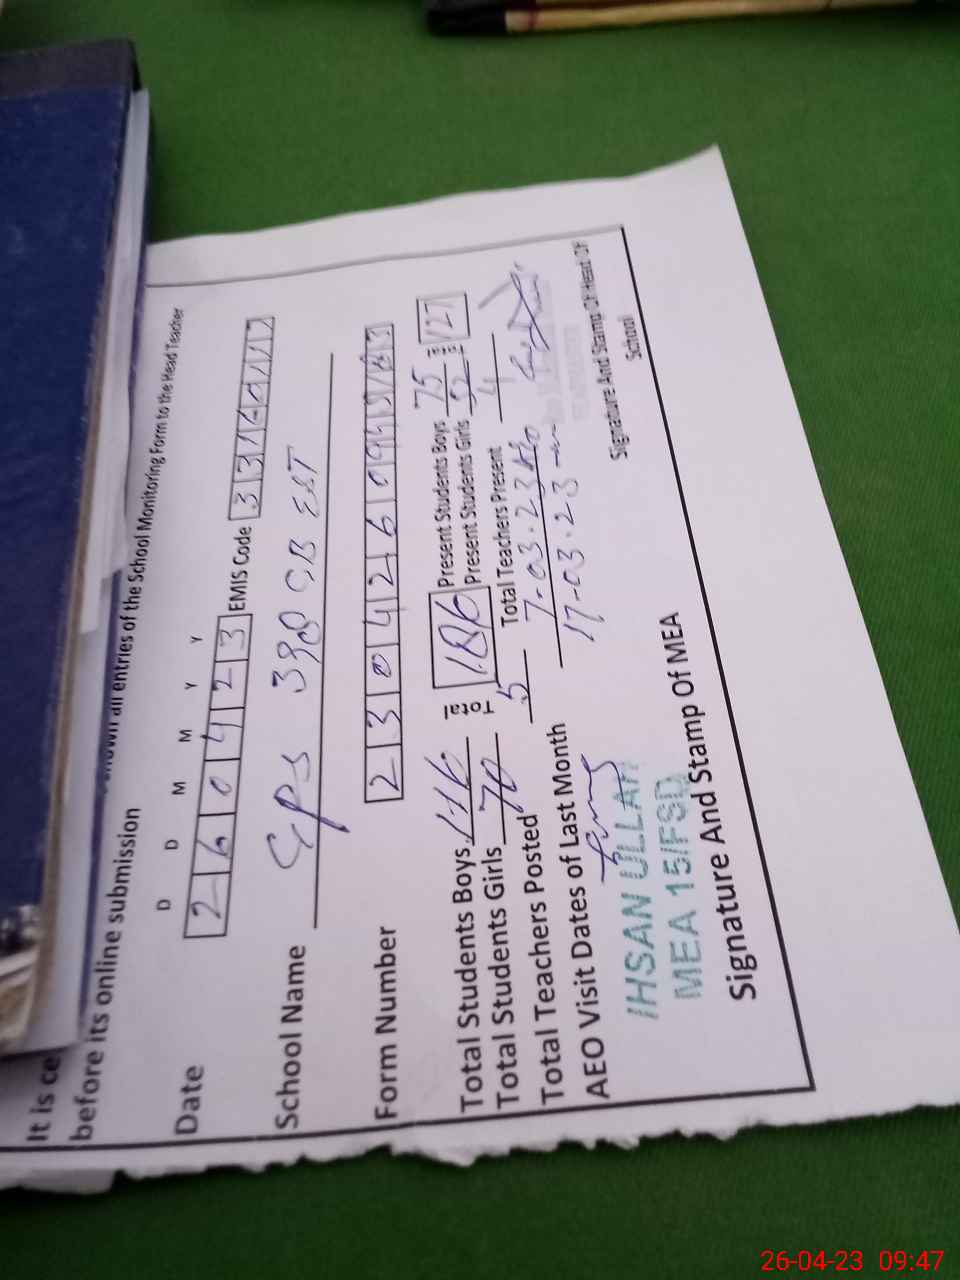 It is ce
all entries of the School Monitoring Form to the Head Teacher
before its online submission
D D M M Y Y
Date 260423 EMIS Code
School Name GPS 398 GB EST
Form Number
Total Students Boys 116 186 Present Students Boys 75 127
Total Students Girls 70 Present Students Girls 52
Total Teachers Posted 5 Total Teachers Present 4
AEO Visit Dates of Last Month 7-03-23
17-03-23
IHSAN ULLAH
MEA 15/FSD
Signature And Stamp Of MEA
Signature And Stamp Of Head Of
School
26-04-23 09:47